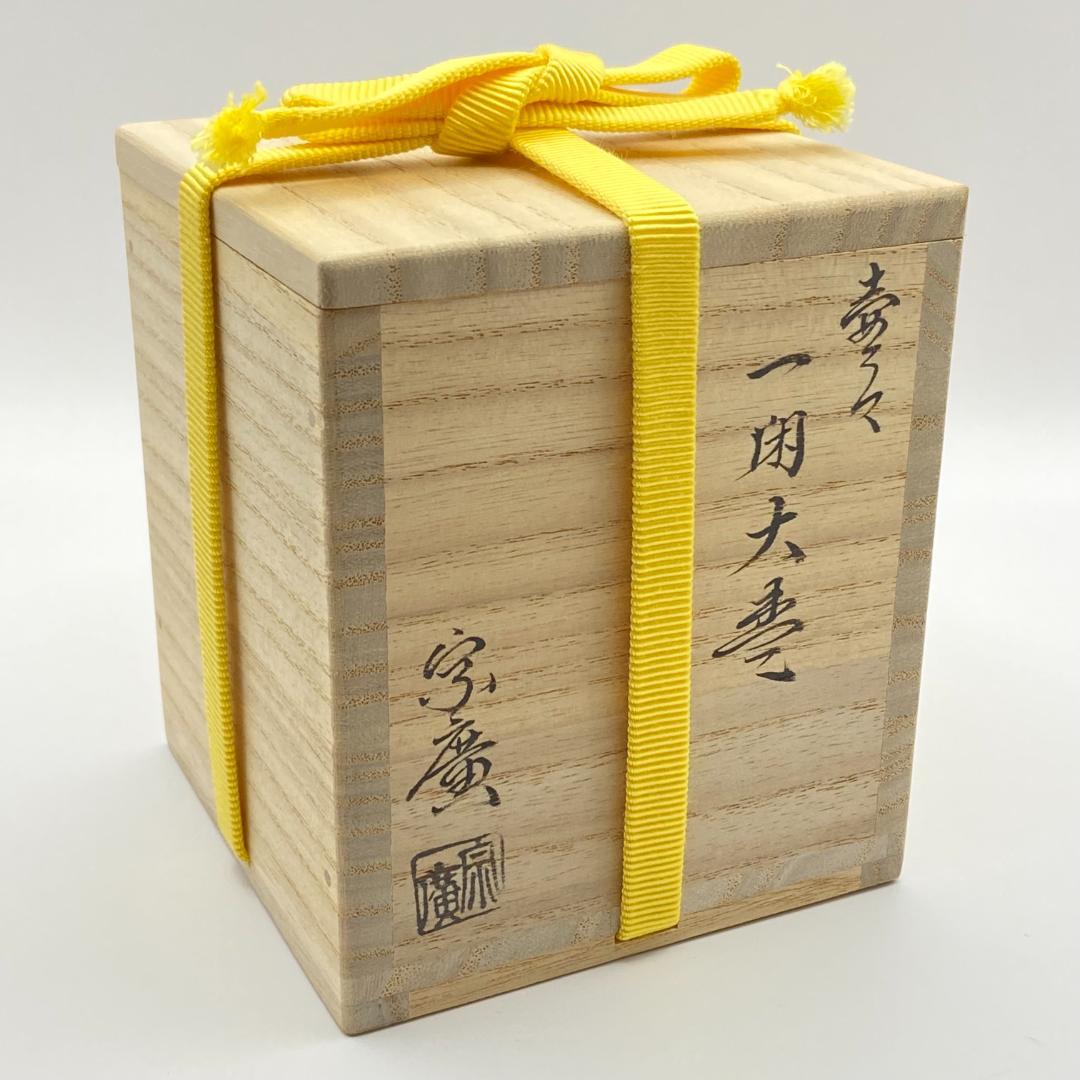 壺々
一閑大棗
宗廣
宗廣